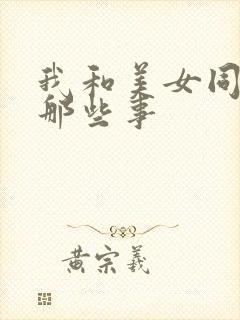 我和美女同
那些事
黄宗羲